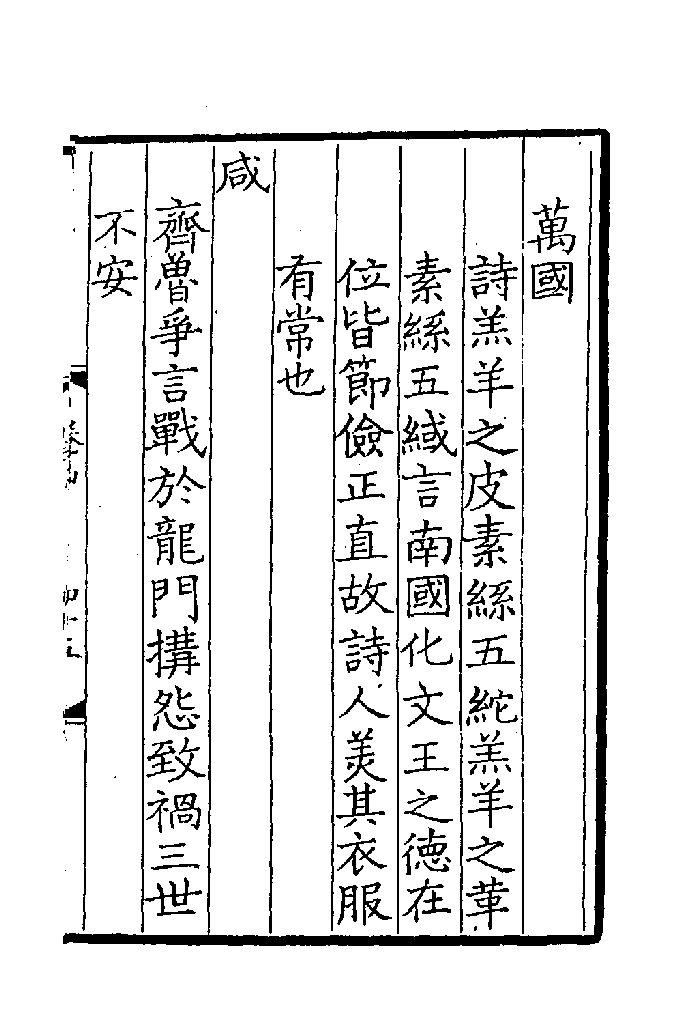 萬國
詩羔羊之皮素絲五紽羔羊之革
素絲五緎言南國化文王之德在
位皆節儉正直故詩人美其衣服
有常也
咸
齊魯爭言戰於龍門搆怨致禍三世
不安